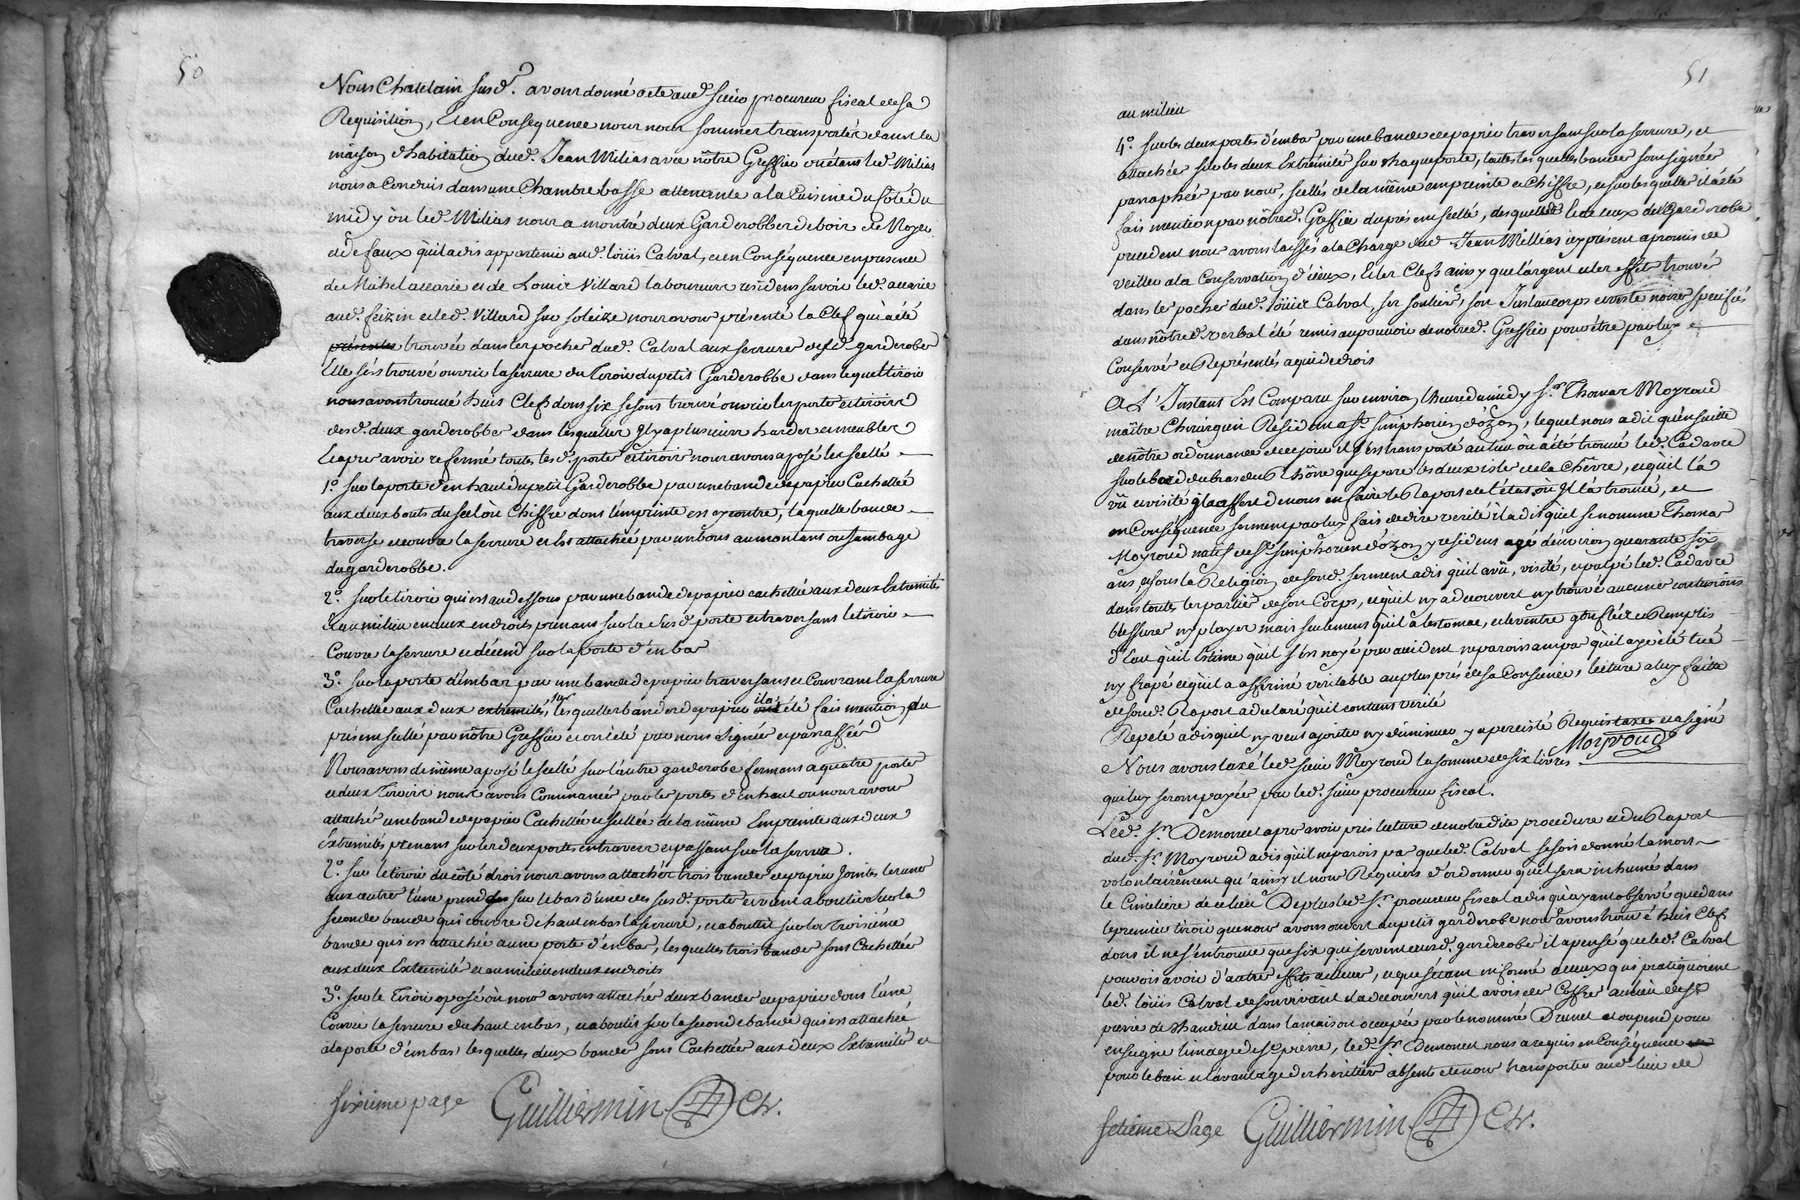 50
Nous Chatelain susd. avons donné acte aud. sieur procureur fiscal de sa
Requisition, et en Consequence nous nous sommes transportés dans la
maison d'habitation dud. Jean Milias avec nôtre Greffier où étant led. Milias
nous a Conduis dans une Chambre basse attenante a la Cuisine du Coté du
midy où led. Milias nous a montré deux Garderobbes de bois de Noyer
et de faux qu'il a dis appartenir aud. loüis Calval, et en Conséquence en presence
de Michel accarie et de Louis Villard laboureurs résidens savoir led. accarie
aud. feizin et led. Villard sur soleize nous avons présenté la Clef qui a été
présentée trouvée dans les poches dud. Calval aux serrures desd. garderobes
Elle s'est trouvé ouvrir la serrure du Tiroir du petit Garderobbe dans lequel tiroir
nous avons trouvé huit Clefs dont six se sont trouvé ouvrir les portes et tiroirs
desd. deux garderobbes dans lesquelles Il y a plusieurs hardes et meubles
Et apres avoir refermé toutes lesd. portes et tiroirs nous avons aposé le scellé
1o. sur la porte d'en haut du petit Garderobbe par une bande de papier Cachettée
aux deux bouts du scel où Chiffre dont l'emprinte est cy contre, laquelle bande
traverse et couvre la serrure et Est attachée par un bout au montant ou Jambage
du garderobbe.
2o. sur le tiroir qui est au dessous par une bande de papier cachettée aux deux Extremités
Et au milieu en deux endroits prenant sur la susd. porte et traversant le tiroir
Couvre la serrure et décend sur la porte d'en bas
3o. sur la porte d'en bas par une bande de papier traversant et Couvrant la serrure
Cachettée aux deux extremités, sur lesquelles bandes de papier il a été fait mention du
present scellé par nôtre Greffier et ont été par nous signées et paraffées
Nous avons de même aposé le scellé sur l'autre garderobe fermant a quatre portes
et deux Tiroirs nous avons Commancés par les portes d'en haut ou nous avons
attaché une bande de papier Cachettée et scellée de la même Empreinte aux deux
Extremités prenant sur les deux portes en travers et passant sur la serrure.
2o. sur le tiroir du côté droit nous avons attachés trois bandes de papier Jointes les unes
aux autres l'une prend sur le bas d'une des susd. portes et vient aboutir sur la
seconde bande qui couvre de haut en bas la serrure, et aboutie sur la Troisiéme
bande qui est attachée a une porte d'en bas, lesquelles trois bandes sont Cachettées
aux deux Extremités et au milieu en deux endroits
3o. sur le Tiroir oposé où nous avons attachés deux bandes de papier dont l'une
Couvre la serrure du haut en bas, et aboutit sur la seconde bande qui est attachée
a la porte d'en bas lesquelles deux bandes sont Cachettées aux deux Extremités et
sixième page Guilliermin Ch.
51
au milieu
4o. sur les deux portes d'en bas par une bande de papier traversant sur la serrure, et
attachée sur les deux Extremités sur chaque porte, toutes lesquelles bandes sont signées
paraphées par nous, scellés de la même empreinte et Chiffre, et sur lesquelles il a été
fait mention par nôtred. Greffier du présent scellé, desquelles et de ceux du Garderobe
precedent nous avons laissés a la Charge dud. Jean Millias icy présent a promis de
veiller a la Conservation d'iceux, Et les Clefs ainsy que l'argent et les effets trouvés
dans les poches dud. Loüis Calval, ses souliers, son Justaucorps et veste noires specifiés
dans nôtred. verbal été remis au pouvoir de nôtred. Greffier pour être par luy
Conservés et Représentés a qui de droit
A L'Instant Est Comparu sur environ l'heure de midy sr. Thomas Moyroud
maître Chirurgien Résident a St. Simphorien d'ozon, lequel nous a dit qu'en suitte
de nôtre ordonnance de ce jour il s'est transporté au lieu où a été trouvé led. Cadavre
sur le bord du bras du Rhône que separe les deux isles de la Chêvre, et qu'il l'a
vû et visité il a offert de nous en faire le Raport de l'état où Il l'a trouvé, et
en Conséquence serment par luy fait de dire verité il a dis qu'il se nomme Thomas
Moyroud natif de St. simphorien d'ozon, y resident agé d'environ quarante six
ans et sous la Religion de son d. serment a dis qu'il a vû, visité, et palpé led. Cadavre
dans toutes les parties de son Corps, et qu'il n'y a decouvert n'y trouvé aucunes contusions
blessures n'y playes mais seulement qu'il a l'estomac, et le ventre gonflée et Remplis
d'Eau qu'il Estime qu'il s'est noyé par accident ne paroissant pas qu'il aye été tué
n'y frapé et qu'il a affirmé veritable au plus prés de sa Conscience, lecture a luy faitte
de son d. Raport a declaré qu'il contient verité
Repeté a dis qu'il n'y veut ajouter n'y diminuer y a persisté Requis taxe et a signé
Moyroud
Nous avons taxé led. sieur Moyroud la somme de six livres
qui luy seront payées par led. sieur procureur fiscal.
Led. Sr. Demoncet apres avoir pris lecture de notre dite procedure et du Raport
dud. Sr. Moyroud a dis qu'il ne parois pas que led. Calval se soit donné la mort
volontairement qu'ainsy il nous Réquiers d'ordonner qu'il sera inhumés dans
le Cimetiere de ce lieu De plus led. Sr. procureur fiscal a dis qu'ayant observé que dans
le premier tiroir que nous avons ouvert du petit garderobe nous avons trouvé huit Clefs
dont il ne s'en trouve que six qui servent auxd. garderobes il a pensé que led. Calval
pouvoit avoir d'autres effets ailleurs, et que s'etant informé a ceux qui pratiquoient
led. loüis Calval de son vivant il a decouvert qu'il avoit des Coffres au lieu de St.
pierre de Chandieu dans la maison occupée par le nommé Drevet et où pend pour
enseigne l'image de St. pierre, led. Sr. Demoncet nous a requis en Conséquence
pour le bien et l'avantage des heritiers absents de nous transporter aud. lieu de
setiéme Page Guilliermin Ch.